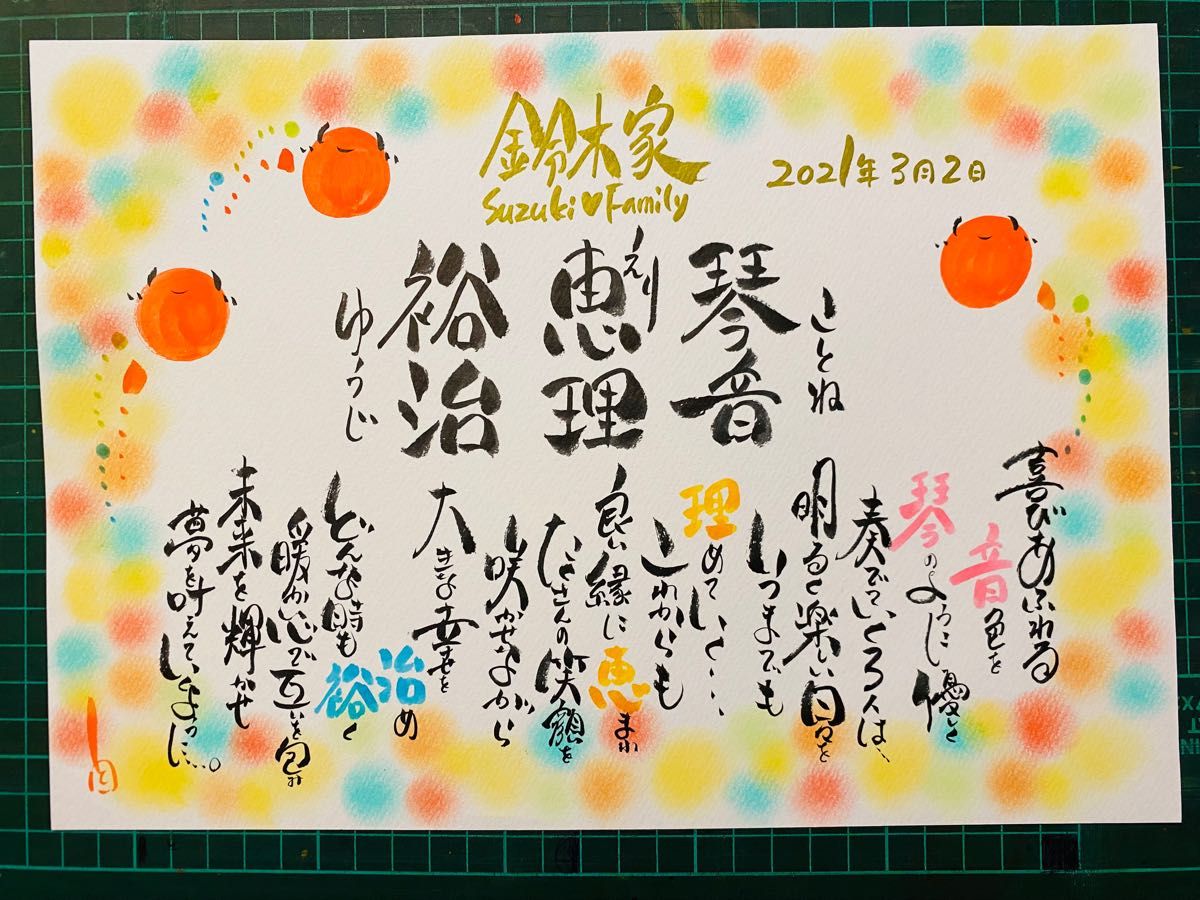 鈴木家
Suzuki♥Family
2021年3月2日
ことね
琴音
えり
恵理
裕治
ゆうじ
喜びあふれる
音色を
琴のように優しく
奏でていく3人は、
明るく楽しい日々を
いつまでも
理めていく・・・
これからも
良い縁に恵まれ
たくさんの笑顔を
咲かせながら
大きな幸せを
治め
どんな時も裕く
暖かい心で互いを包み
未来を輝かせ
夢を叶えていくように…。